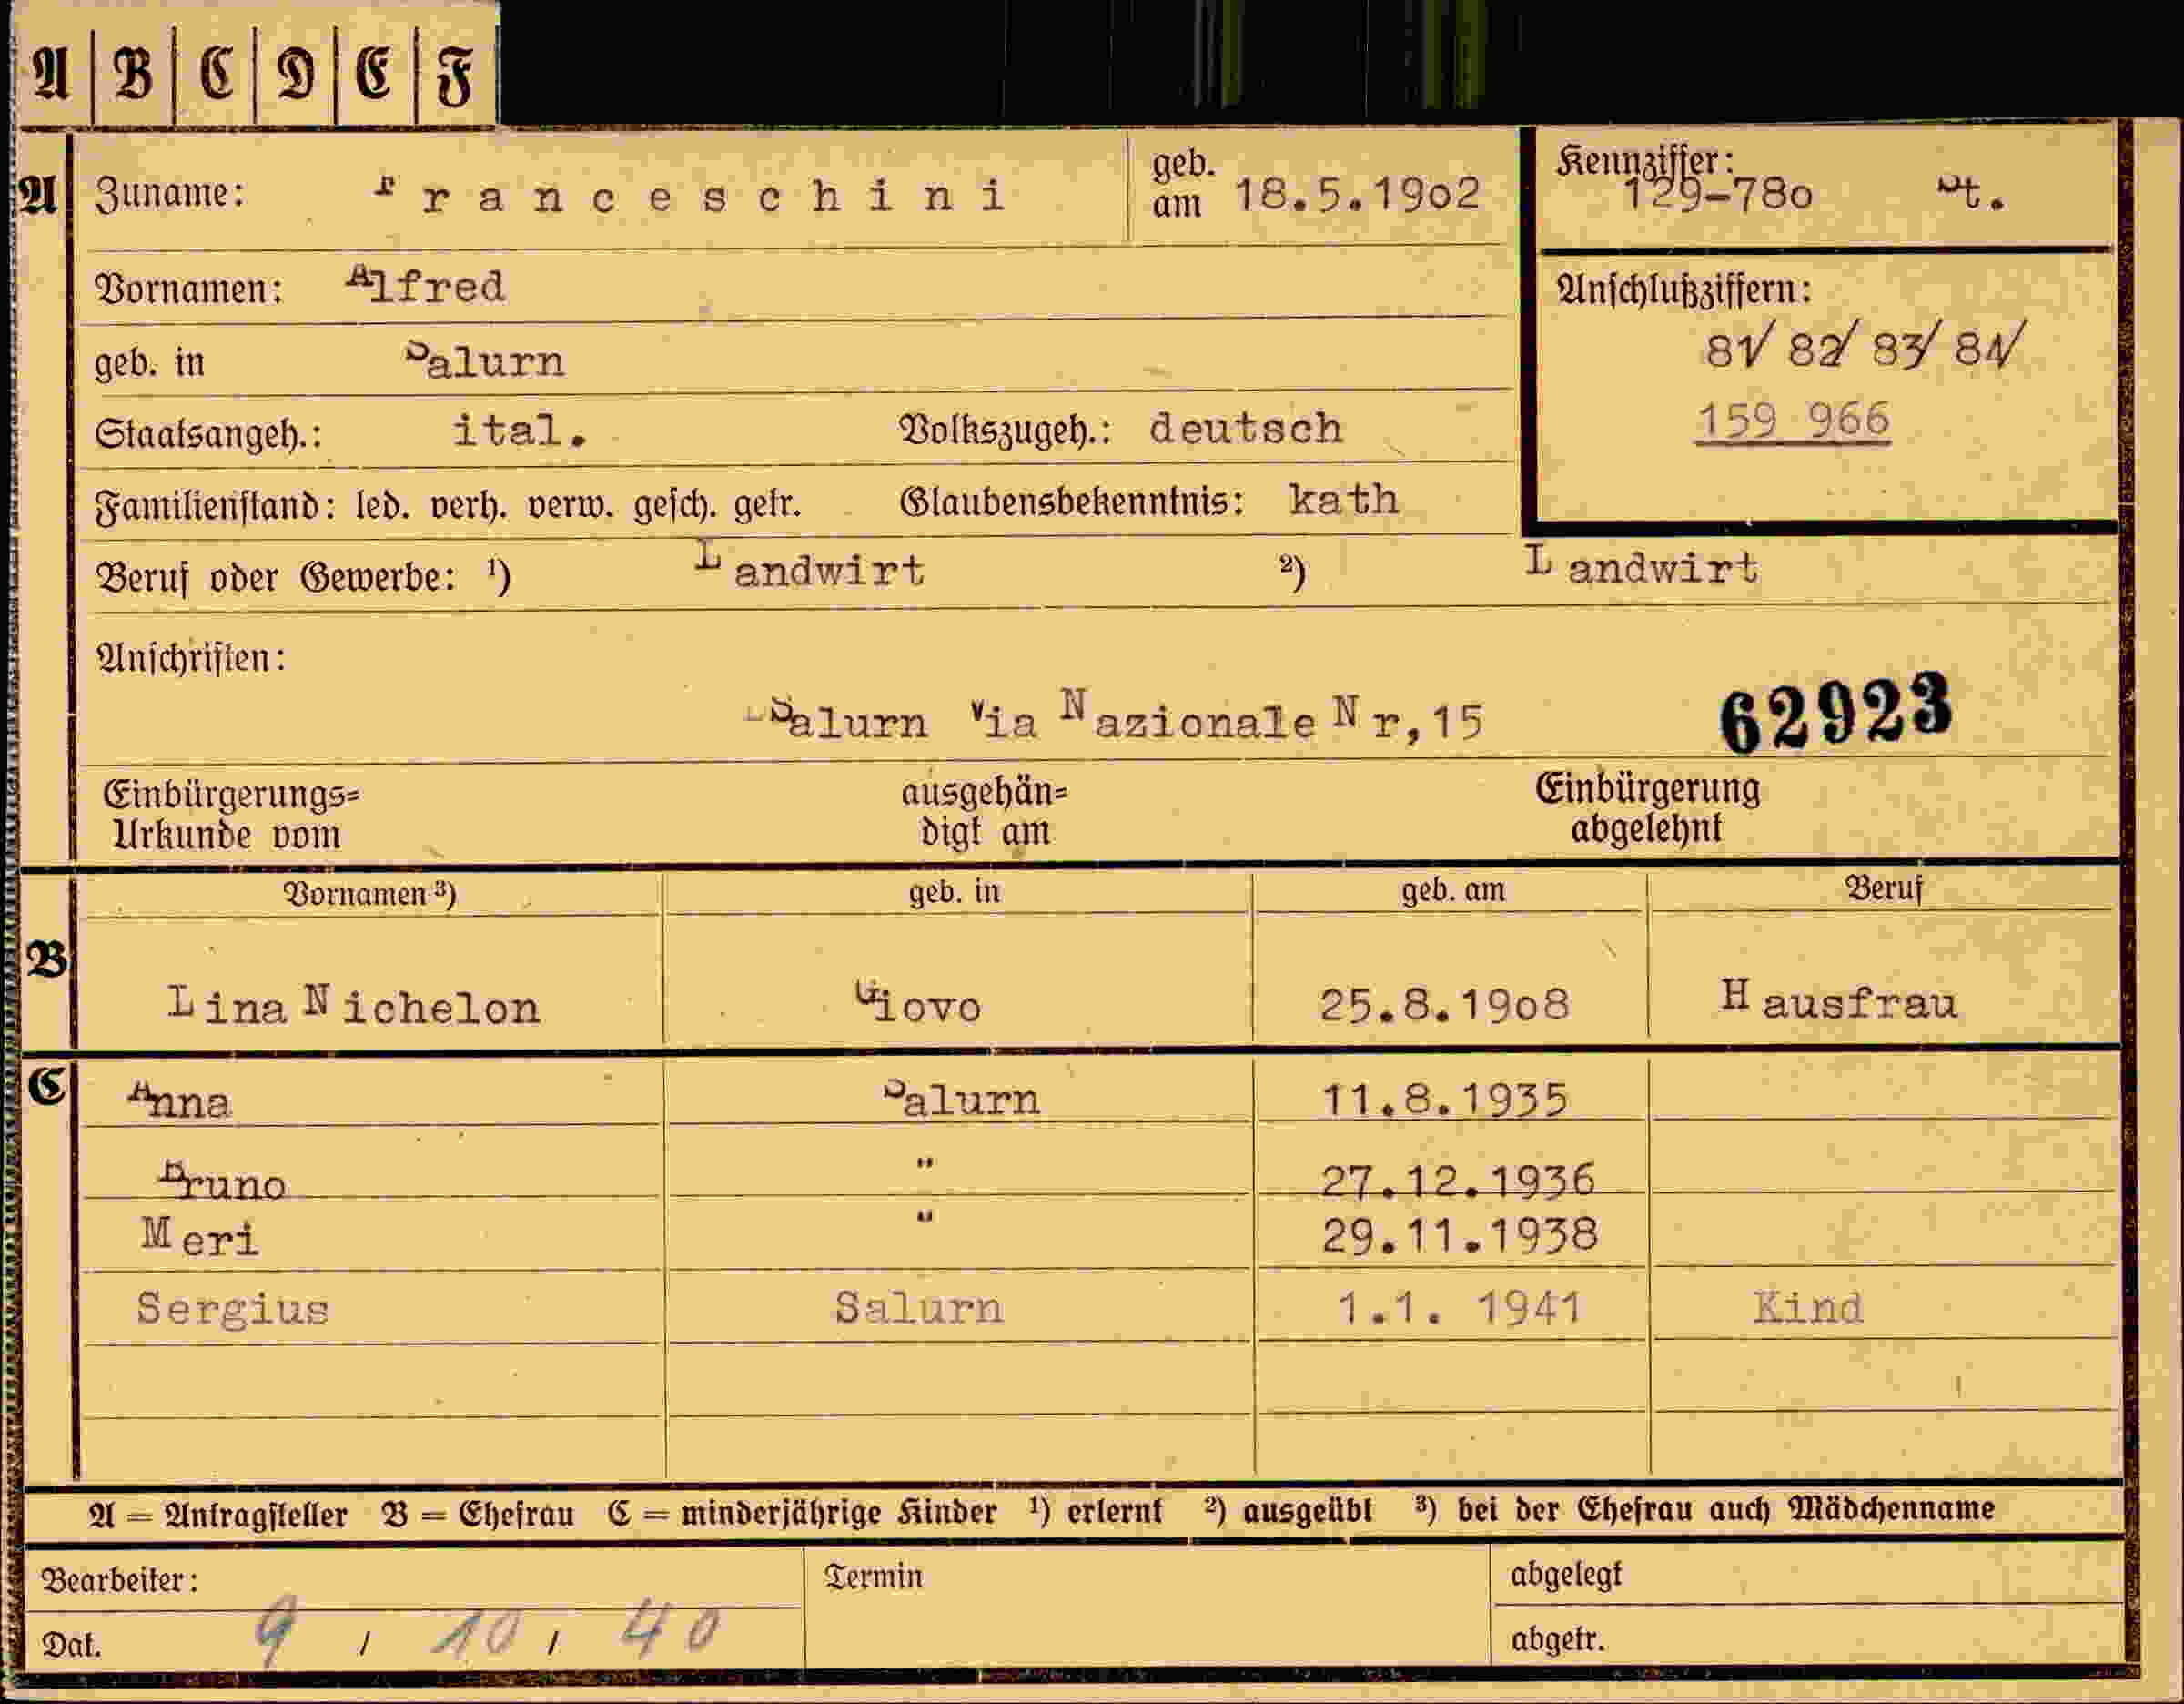 A B C D E F
A Zuname: Franceschini geb. am 18.5.1902 Kennziffer: 129-780 St.
Vornamen: Alfred
Anschlußziffern:
geb. in Salurn
81/ 82/ 83/ 84/
Staatsangeh.: ital. Volkszugeh.: deutsch
159 966
Familienstand: led. verh. verw. gesch. getr. Glaubensbekenntnis: kath
Beruf oder Gewerbe: ¹) Landwirt ²) Landwirt
Anschriften:
Salurn Via Nazionale Nr,15 62923
Einbürgerungs= ausgehän= Einbürgerung
Urkunde vom digt am abgelehnt
Vornamen ³) geb. in geb. am Beruf
B
Lina Nichelon Giovo 25.8.1908 Hausfrau
C Anna Salurn 11.8.1935
Bruno " 27.12.1936
Meri " 29.11.1938
Sergius Salurn 1.1. 1941 Kind
A = Antragsteller B = Ehefrau C = minderjährige Kinder ¹) erlernt ²) ausgeübt ³) bei der Ehefrau auch Mädchenname
Bearbeiter: Termin abgelegt
Dat. 9 / 10 / 40 abgetr.